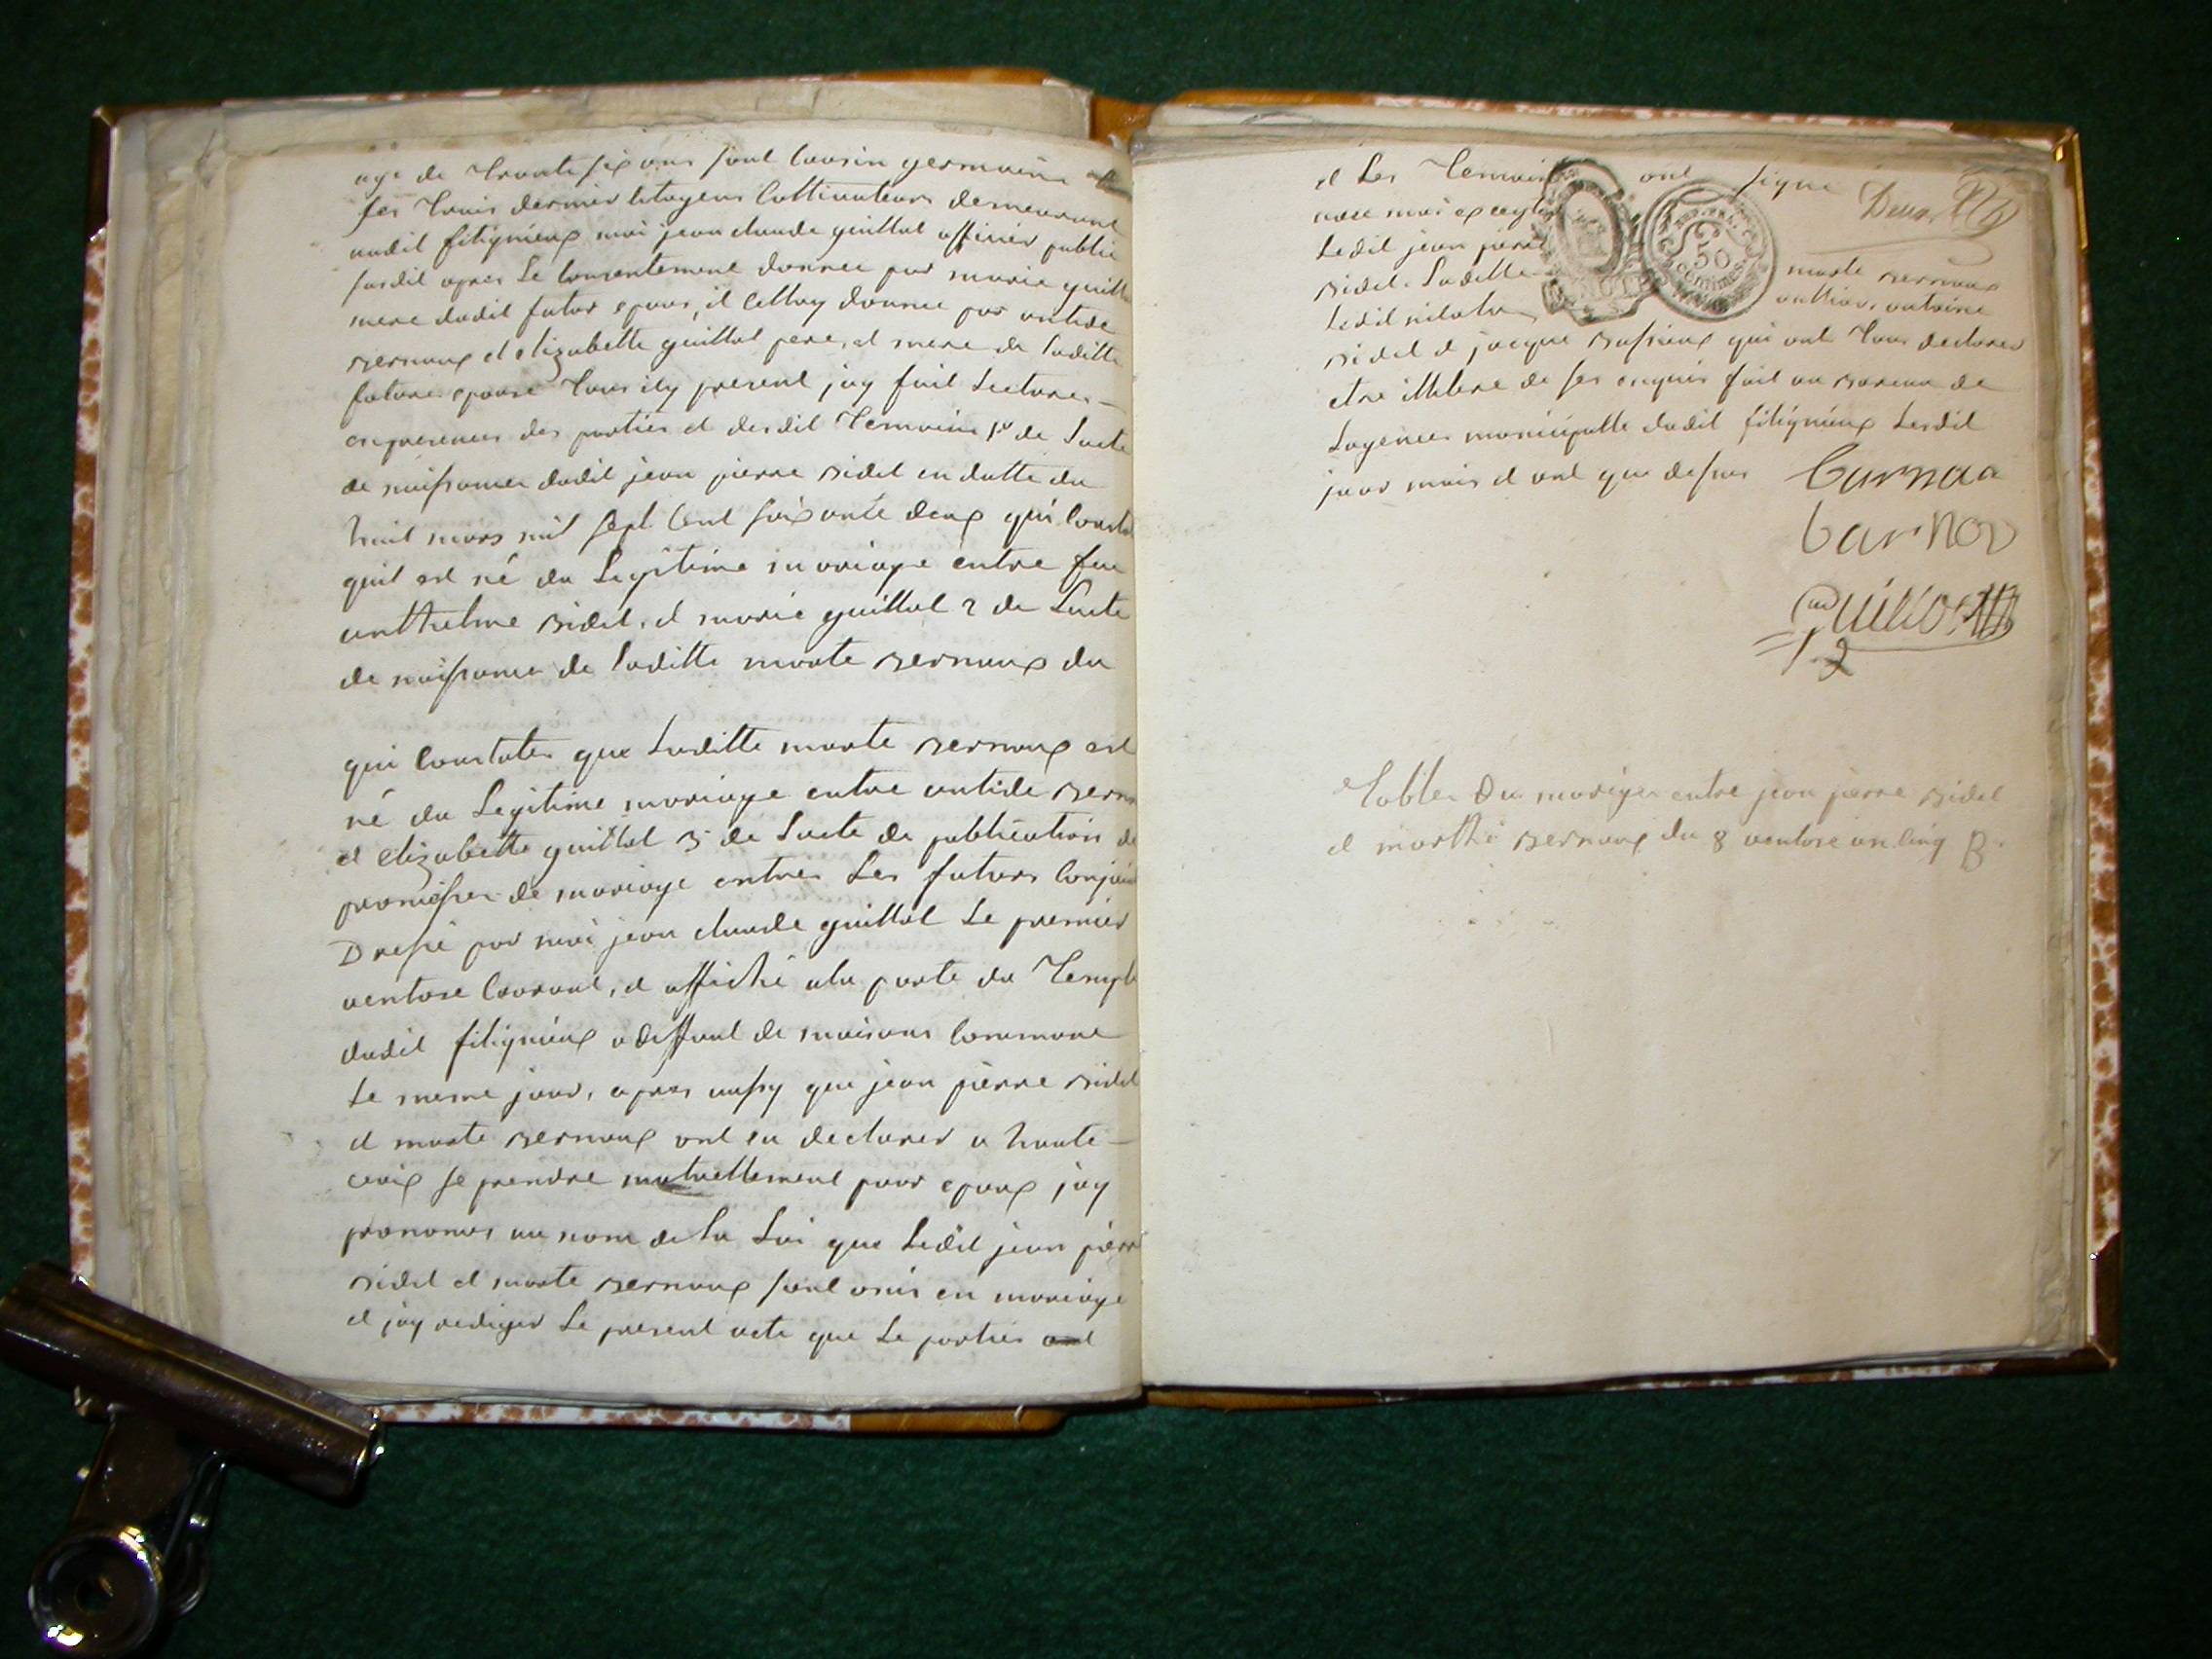 age de trante six ans sont cousin germains
ses trois dernier citoyens cultivateurs demeurant
audit fitignieux moi jean claude guillot officier public
susdit apres le consentement donnee par marie guillot
mere dudit futur epoux, et celluy donnee par antide
Bernoux et elizabette guillot pere et mere de laditte
future epouse tous icy present jay fait lecture
en presence des parties et desdit temoins 1º de lacte
de naissance dudit jean pierre Bidel en datte du
huit mars mil sept cent soixante deux qui constate
quil est né du legitime mariage entre feu
anthelme Bidel, et marie guillot 2 de lacte
de naissance de laditte marte Bernoux du
qui constate que laditte marte Bernoux est
né du legitime mariage entre antide Bernoux
et elizabette guillot 3 de lacte de publication de
promesse de mariage entre les futurs conjoint
Dressé par moi jean claude guillot le premier
ventose courant, et affiché a la porte du temple
dudit fitignieux a deffaut de maisons commune
le meme jour, apres aussy que jean pierre Bidel
et marte Bernoux ont eu declarer a haute
voix se prendre mutuellement pour epoux jay
prononcer au nom de la loi que ledit jean pierre
Bidel et marte Bernoux sont unis en mariage
et jay rediger le present acte que le parties
et les temoins ont signe
avec moi excepter
ledit jean pierre
Bidel. laditte marte Bernoux
ledit antoine
Bidel et jacque qui ont tous declarer
etre illetere de ses enquis fait au Bureau de
lagence municipalle dudit fitignieux lesdit
jour mois et ant que dessus
50
centimes
carnov
Guillot
table du mariage entre jean pierre Bidel
et marthe Bernoux du 8 ventose an cinq